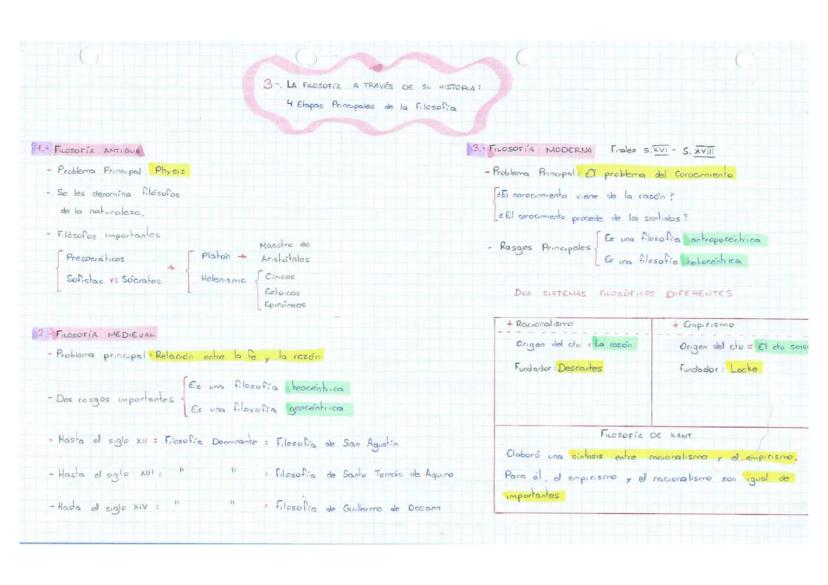 3-. LA FILOSOFÍA A TRAVÉS DE SU HISTORIA:
4 Etapas Principales de la Filosofía
1.- FILOSOFÍA ANTIGUA
- Problema Principal Physis
- Se les denomina filósofos
de la naturaleza.
- Filósofos importantes
Presocráticos
Sofistas VS Sócrates
Platón → Maestro de
Aristóteles
Helenismo
Cínicos
Estoicos
Epicúreos
2.- FILOSOFÍA MEDIEVAL
- Problema principal: Relación entre la fe y la razón
- Dos rasgos importantes
Es una filosofía teocéntrica
Es una filosofía geocéntrica
- Hasta el siglo XII = Filosofía Dominante = Filosofía de San Agustín
- Hasta el siglo XIII = " " = Filosofía de Santo Tomás de Aquino
- Hasta el siglo XIV = " " = Filosofía de Guillermo de Occam
3.- FILOSOFÍA MODERNA Finales S.XVI - S. XVIII
- Problema Principal: El problema del Conocimiento
¿El conocimiento viene de la razón?
¿El conocimiento procede de los sentidos?
- Rasgos Principales
Es una filosofía antropocéntrica
Es una filosofía heliocéntrica
DOS SISTEMAS FILOSÓFICOS DIFERENTES
+ Racionalismo
Origen del cto = La razón
Fundador: Descartes
+ Empirismo
Origen del cto = El cto
Fundador: Locke
FILOSOFÍA DE KANT
Elaboró una síntesis entre racionalismo y el empirismo.
Para él, el empirismo y el racionalismo son igual de
importantes